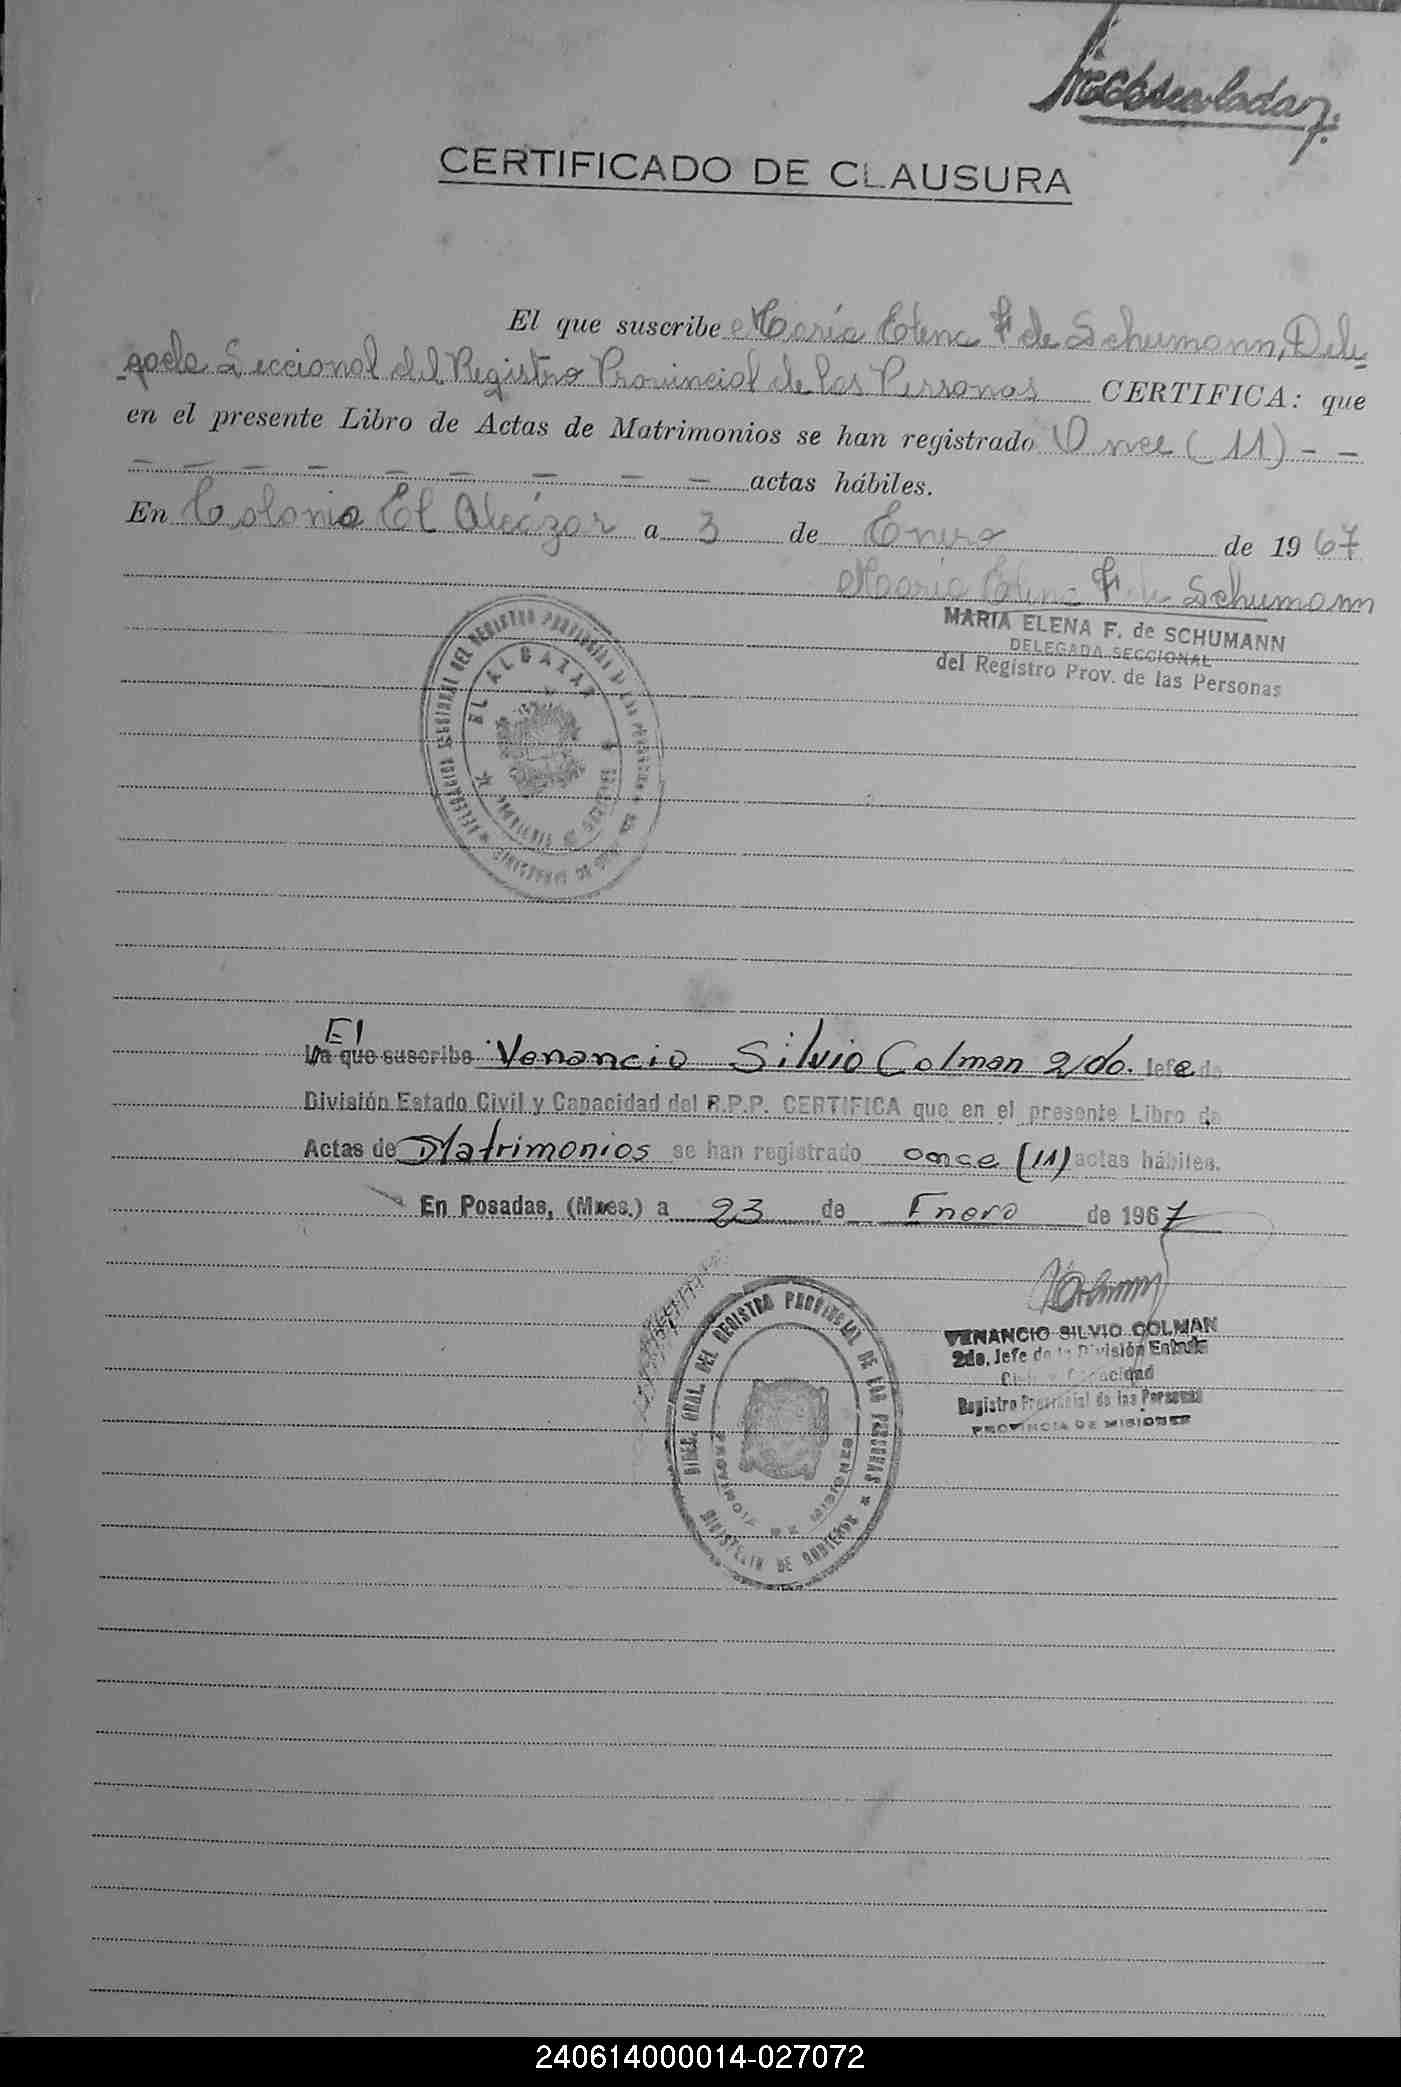 CERTIFICADO DE CLAUSURA
El que suscribe María Elena F de Schumann, Dele
gada Seccional del Registro Provincial de las Personas CERTIFICA: que
en el presente Libro de Actas de Matrimonios se han registrado Once (11) - -
- - - - - - - - - actas hábiles.
En Colonia El Alcázar a 3 de Enero de 1967
María Elena F. de Schumann
MARIA ELENA F. de SCHUMANN
DELEGADA SECCIONAL
del Registro Prov. de las Personas
EL ALCAZAR
El
La que suscribe Venancio Silvio Colman 2/do. Jefe de
División Estado Civil y Capacidad del R.P.P. CERTIFICA que en el presente Libro de
Actas de Matrimonios se han registrado once (11) actas hábiles.
En Posadas, (Mnes.) a 23 de Enero de 1967
VENANCIO SILVIO COLMAN
2do. Jefe de la División Estado
Civil y Capacidad
Registro Provincial de las Personas
PROVINCIA DE MISIONES
DIREC. GRAL. DEL REGISTRO PROVINCIAL DE LAS PERSONAS
PROVINCIA DE MISIONES
MINISTERIO DE GOBIERNO
240614000014-027072